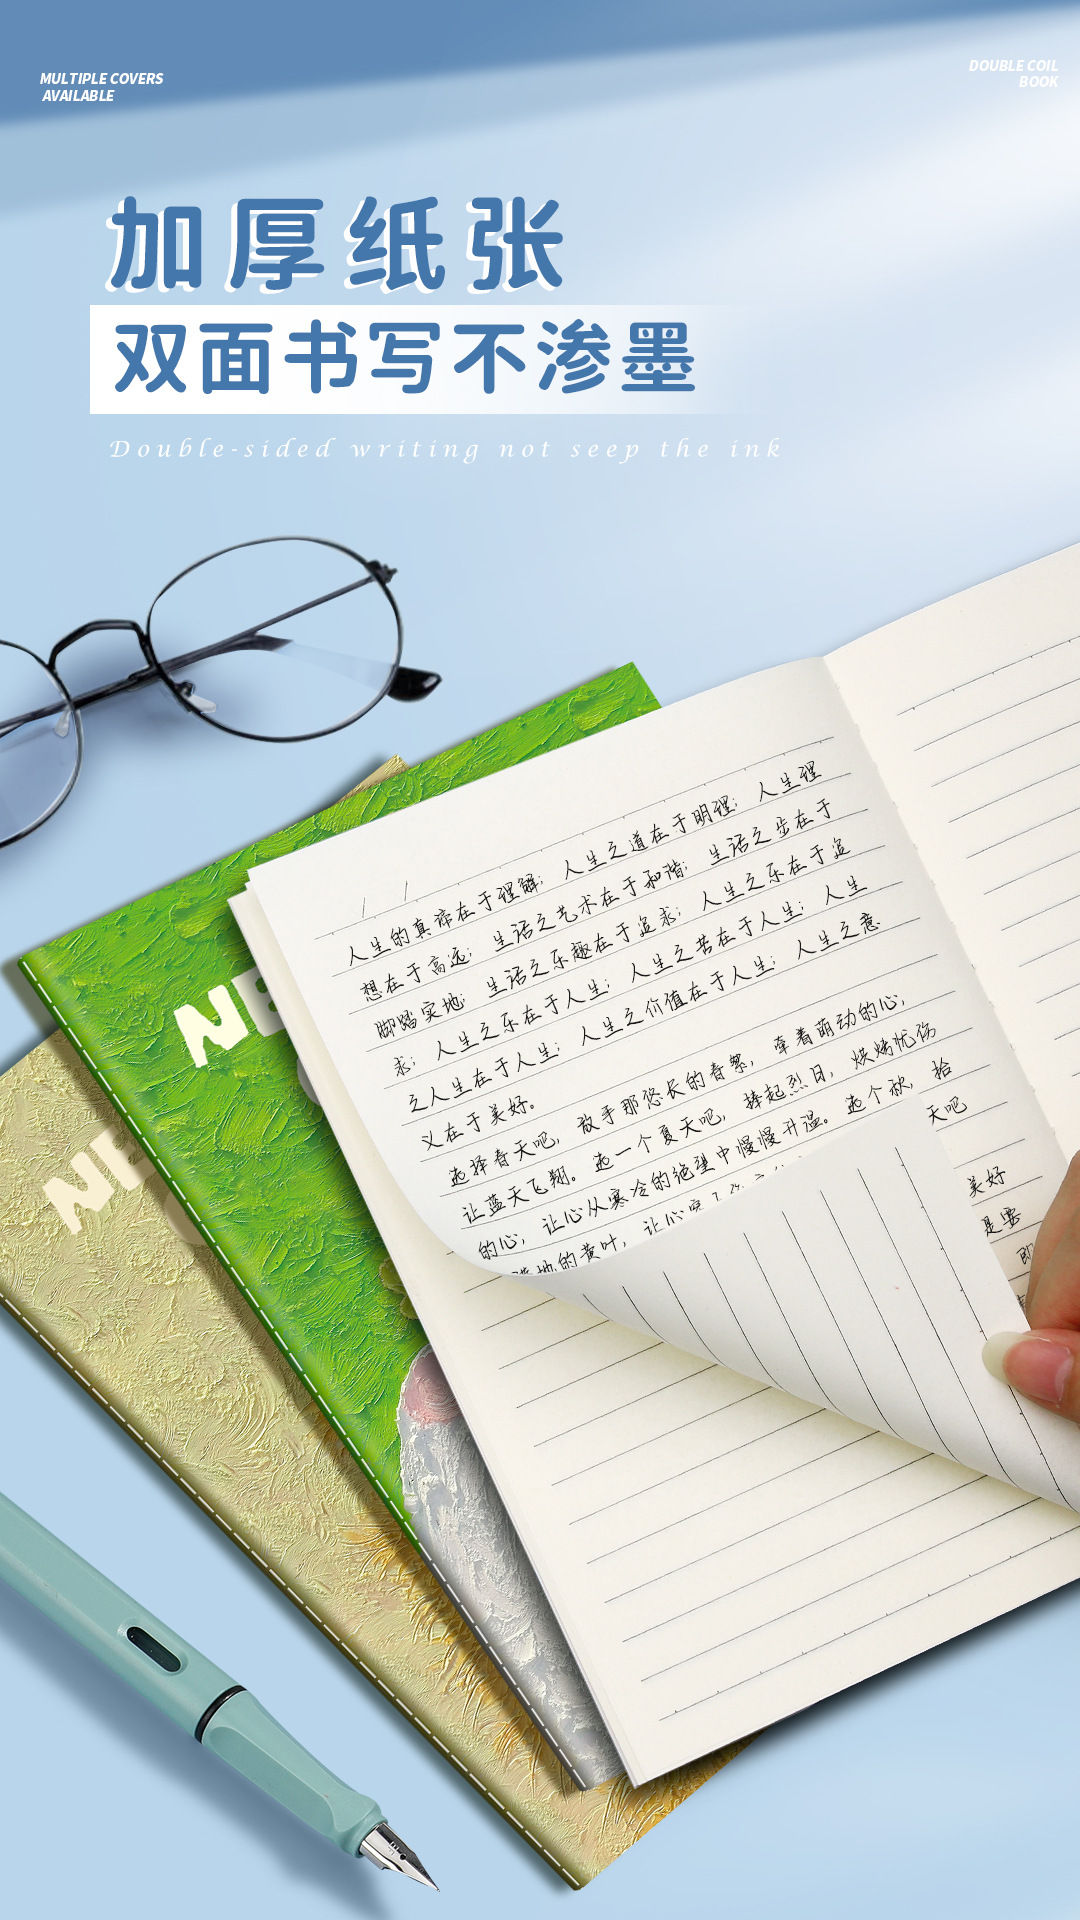 MULTIPLE COVERS
AVAILABLE
DOUBLE COIL
BOOK
加厚纸张
双面书写不渗墨
Double-sided writing not seep the ink
人生的真谛在于理解；人生之道在于明理；人生理
想在于高远；生活之艺术在于和谐；生活之步在于
脚踏实地；生活之乐趣在于追求；人生之乐在于追
求；人生之乐在于人生；人生之苦在于人生；人生
之人生在于人生；人生之价值在于人生；人生之意
义在于美好。
选择春天吧，放手那悠长的眷念，牵着萌动的心，
让蓝天飞翔。选一个夏天吧，捧起烈日，烘烤忧伤
的心，让心从寒冷的绝望中慢慢升温。选个秋，拾
满地的黄叶，让心
天吧
美好
是要
即